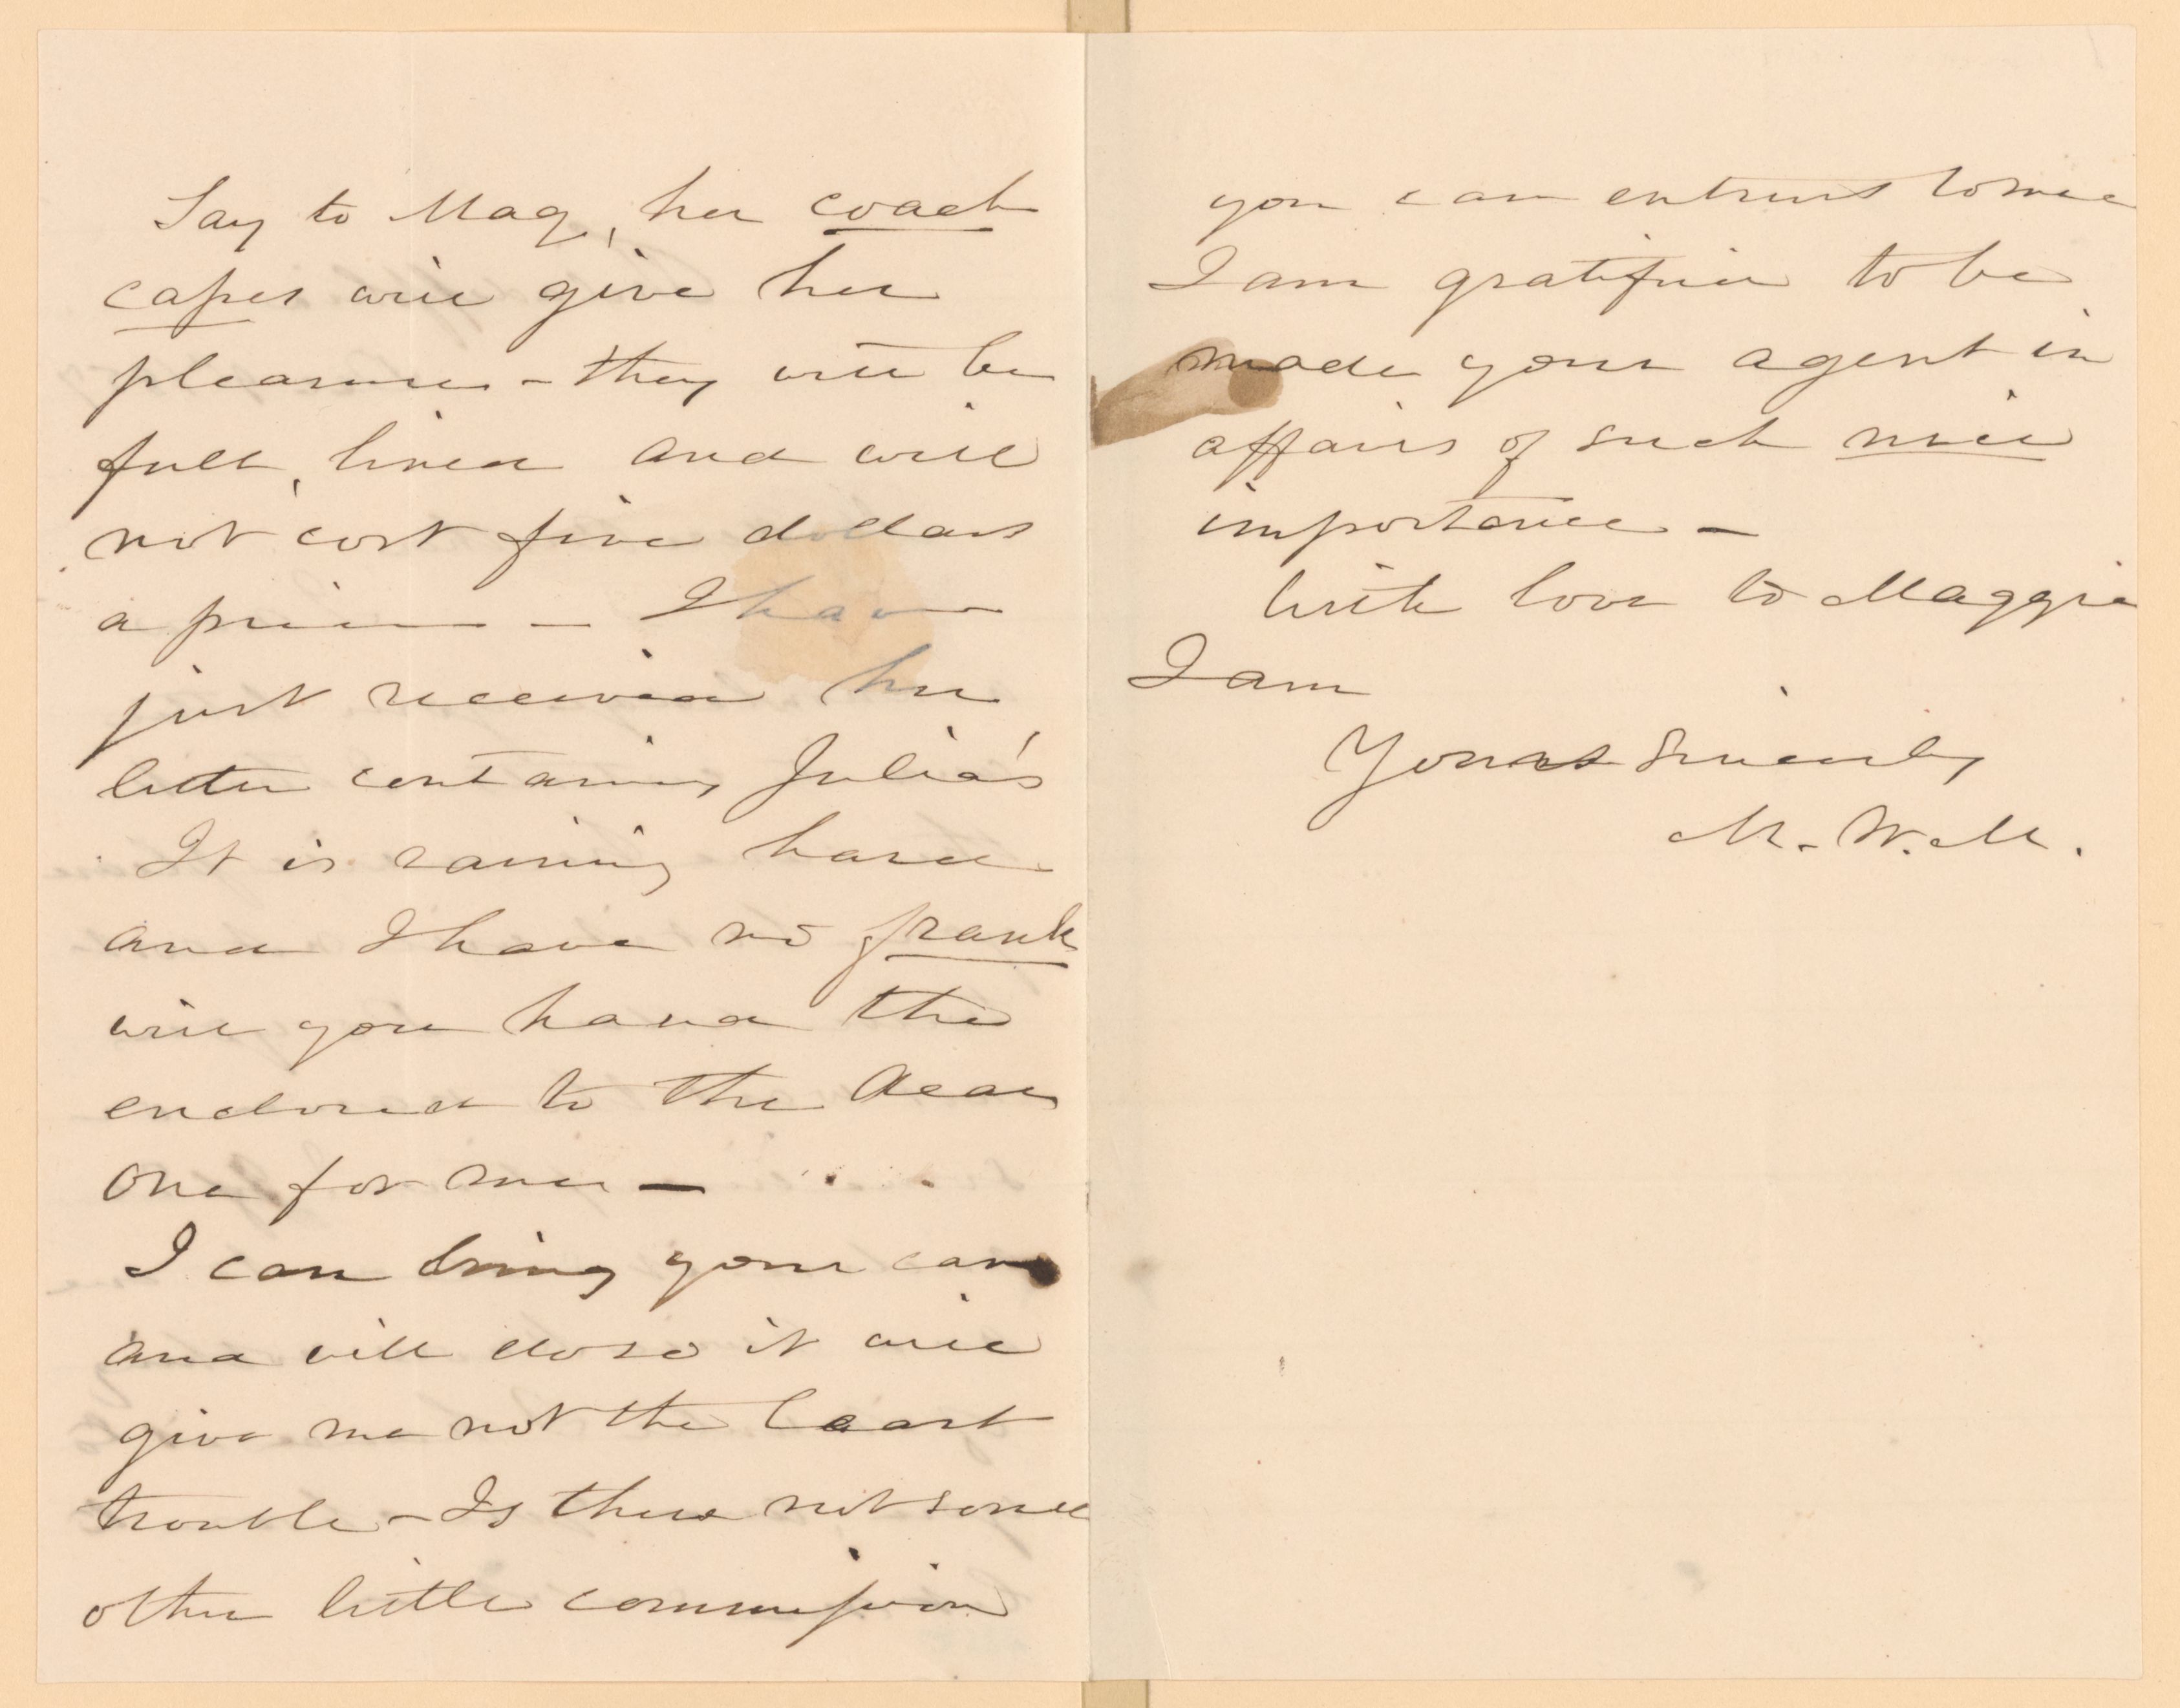 Say to Mag, her coach
capes will give her
pleasure - they will be
full, lined and will
not cost five dollars
a piece - I have
just received her
letter containing Julia's
It is raining hard
and I have no frank
will you hand the
enclosed to the dear
one for me -
I can bring your
and will close it will
give me not the least
trouble - Is there not some
other little commission
you can entrust to me
I am gratified to be
made your agent in
affairs of such nice
importance -
With love to Maggie
I am
Yours Sincerely
M. W. M.